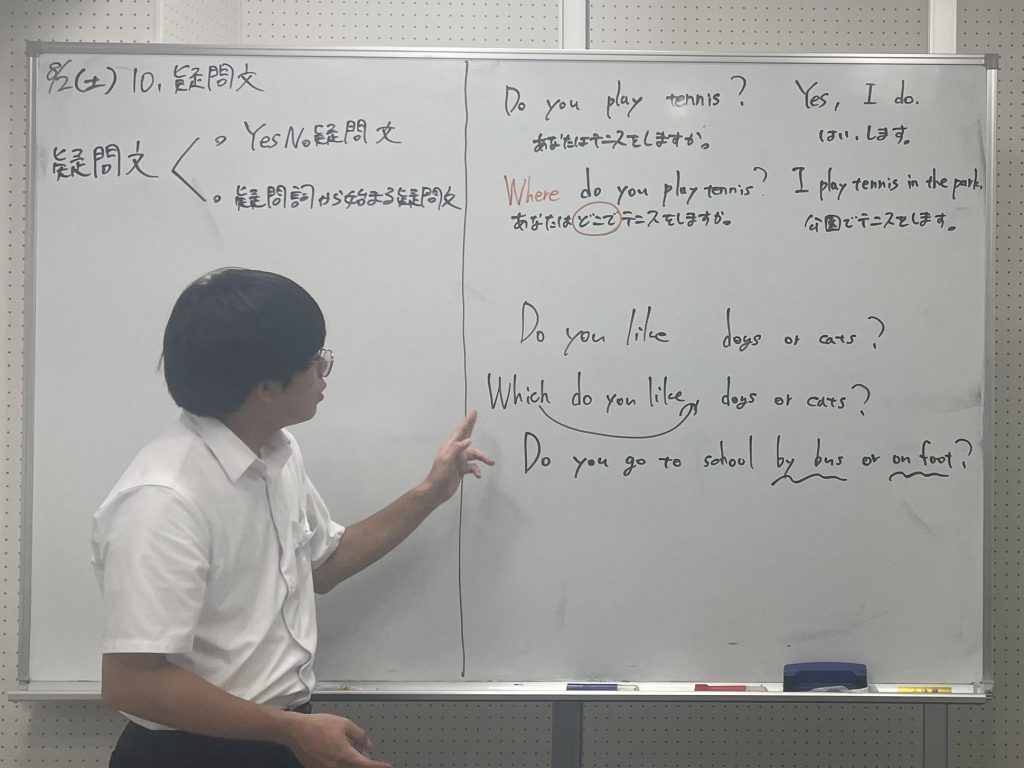 8/2(土) 10. 疑問文
疑問文
。YesNo疑問文
。疑問詞から始まる疑問文
Do you play tennis? Yes, I do.
あなたはテニスをしますか。 はい、します。
Where do you play tennis? I play tennis in the park.
あなたはどこでテニスをしますか。 公園でテニスをします。
Do you like dogs or cats?
Which do you like, dogs or cats?
Do you go to school by bus or on foot?